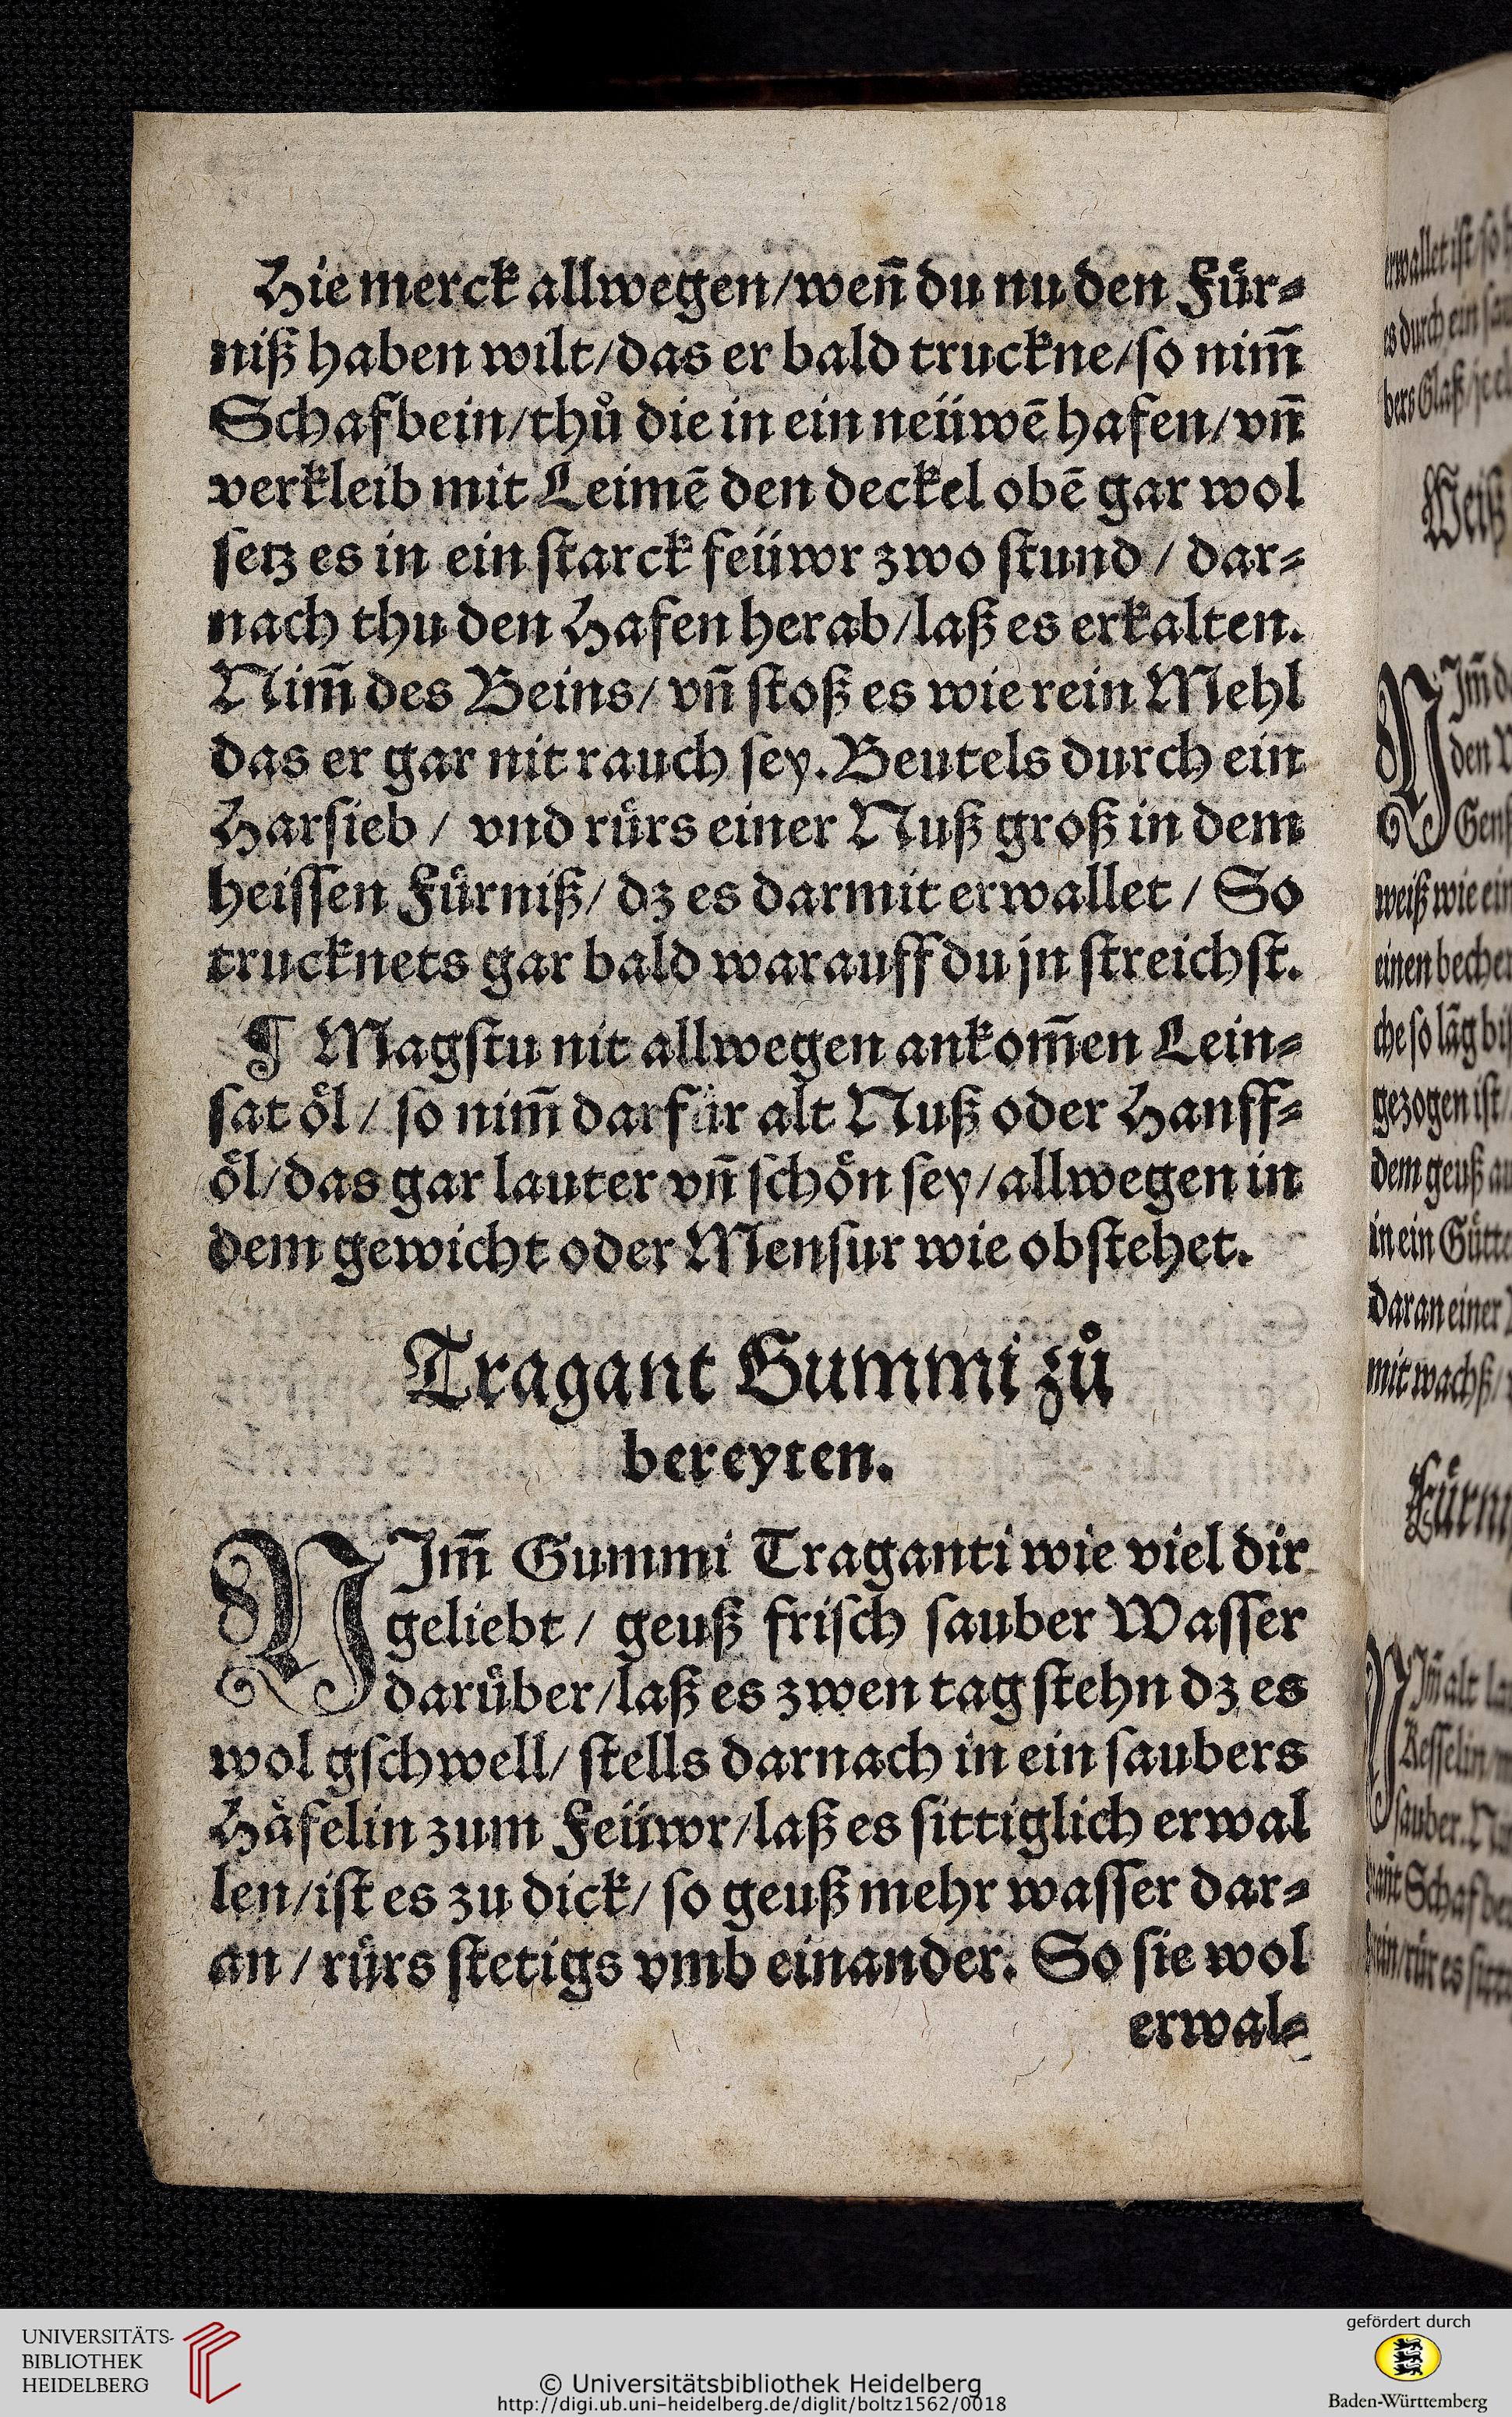 Hie merck allwegen/wen̄ du nu den Fuͤr⸗
niß haben wilt/das er bald truckne/so nim̄
Schafbein/thuͦ die in ein neüwē hafen/vn̄
verkleib mit Leimē den deckel obē gar wol
setz es in ein starck feüwr zwo stund / dar⸗
nach thu den Hafen herab/laß es erkalten.
Nim̄ des Beins/ vn̄ stoß es wie rein Mehl
das er gar nit rauch sey. Beutels durch ein
Harsieb / vnd ruͤrs einer Nuß groß in dem
heissen Fuͤrniß/ dz es darmit erwallet / So
trucknets gar bald warauff du jn streichst.
¶ Magstu nit allwegen ankom̄en Lein⸗
sat oͤl / so nim̄ darfür alt Nuß oder Hanff⸗
oͤl/das gar lauter vn̄ schoͤn sey/allwegen in
dem gewicht oder Mensur wie obstehet.
Tragant Gummi zuͦ
bereyten.
NIm̄ Gummi Traganti wie viel dir
geliebt / geuß frisch sauber Wasser
daruͤber/laß es zwen tag stehn dz es
wol gschwell/ stells darnach in ein saubers
Haͤfelin zum Feüwr/laß es sittiglich erwal
len/ist es zu dick/ so geuß mehr wasser dar⸗
an / ruͤrs stetigs vmb einander. So sie wol
erwal⸗
erwallet ist/so
es durch ein
bers Glaß/
Weiß
NIm̄
den
weiß wie ein
einen becher
che so lāg biß
gezogen ist/
dem geuß
in ein
daran einer
mit wachß/
NIm̄ alt
Kesselin
sauber.
ruͤr es
UNIVERSITÄTS-
BIBLIOTHEK
HEIDELBERG
© Universitätsbibliothek Heidelberg
http://digi.ub.uni-heidelberg.de/diglit/boltz1562/0018
gefördert durch
Baden-Württemberg